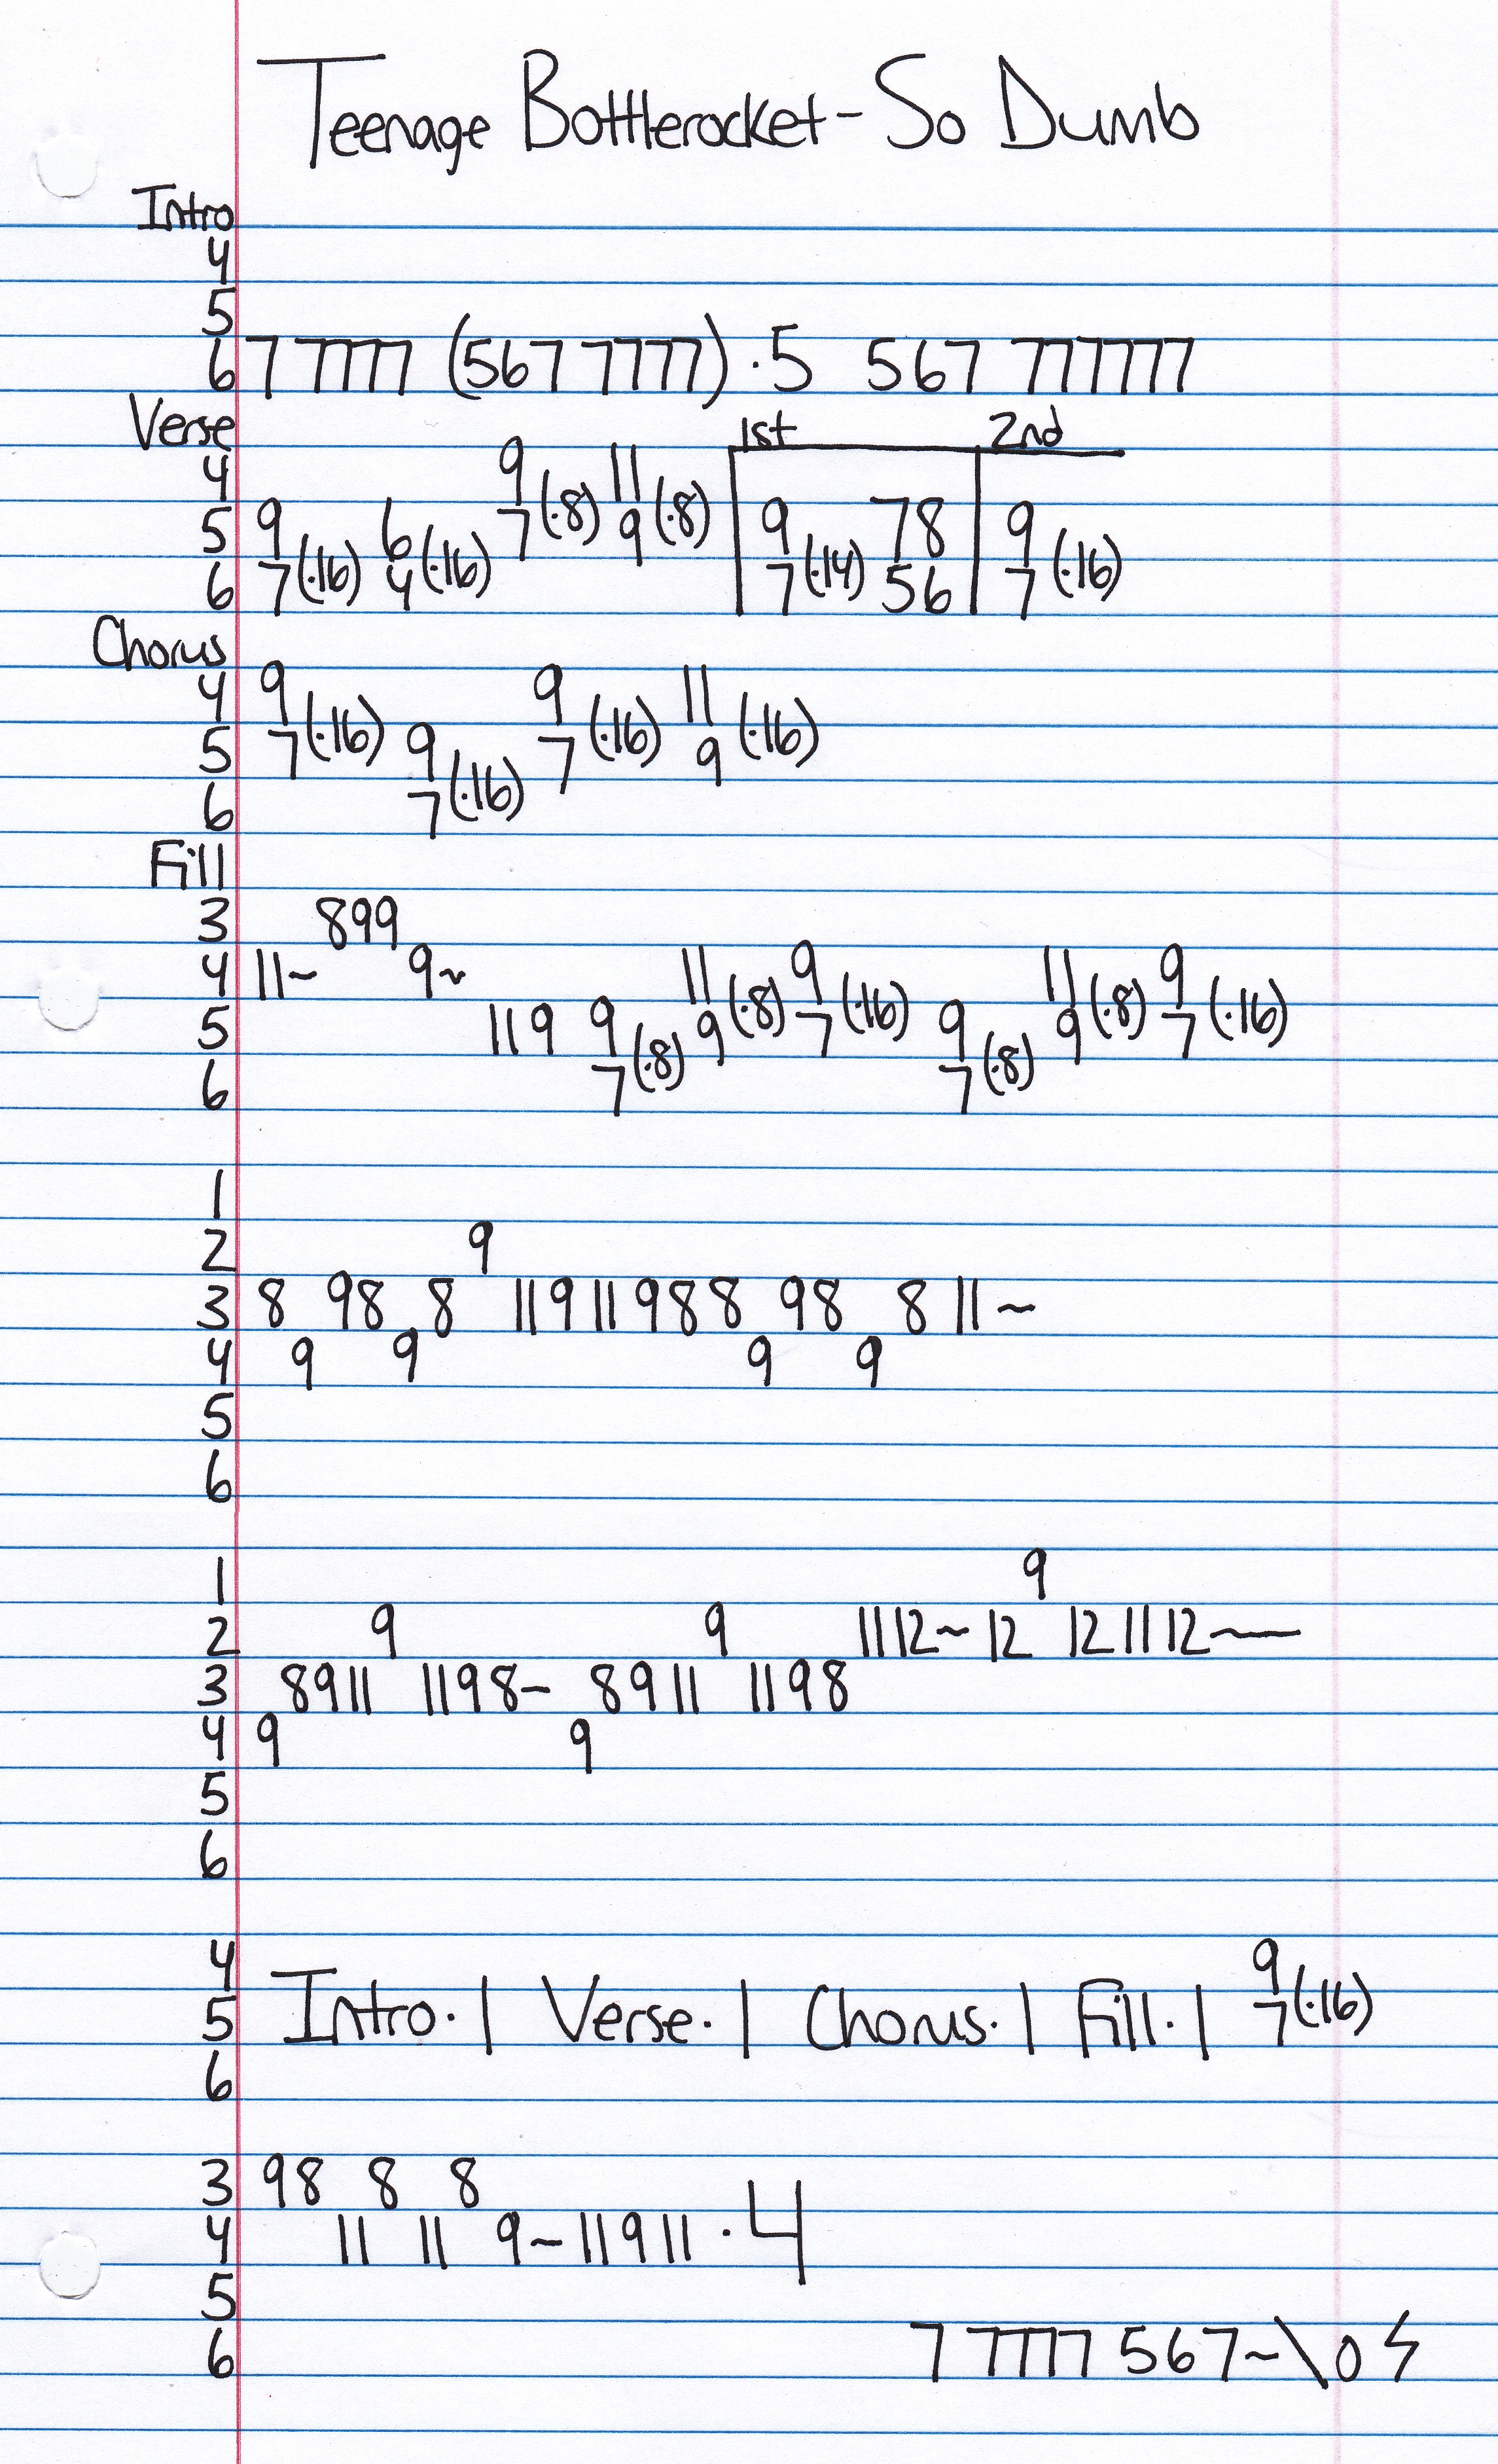 Teenage Bottlerocket - So Dumb
Intro
4
5
6 7 7777 (567 7777) ·5 567 777777
Verse 1st 2nd
4 9 11
5 9 6 7 (·8) 9 (·8) 9 78 9
6 7 (·16) 4 (·16) 7 (·14) 56 7 (·16)
Chorus
4 9 9 11
5 7 (·16) 9 7 (·16) 9 (·16)
6 7 (·16)
Fill
3 899
4 11~ 9~ 11 9 11 9
5 11 9 9 9 (·8) 7 (·16) 9 9 (·8) 7 (·16)
6 7 (·8) 7 (·8)
1
2 9
3 8 98 8 11 9 11 9 8 8 98 8 11~
4 9 9 9 9
5
6
1 9
2 9 9 11 12~ 12 12 11 12~
3 8 9 11 11 9 8~ 8 9 11 11 9 8
4 9 9
5
6
4 9
5 Intro. | Verse. | Chorus. | Fill. | 7 (·16)
6
3 98 8 8
4 11 11 9~ 11 9 11 ·4
5
6 7 7777 567~\0ϟ